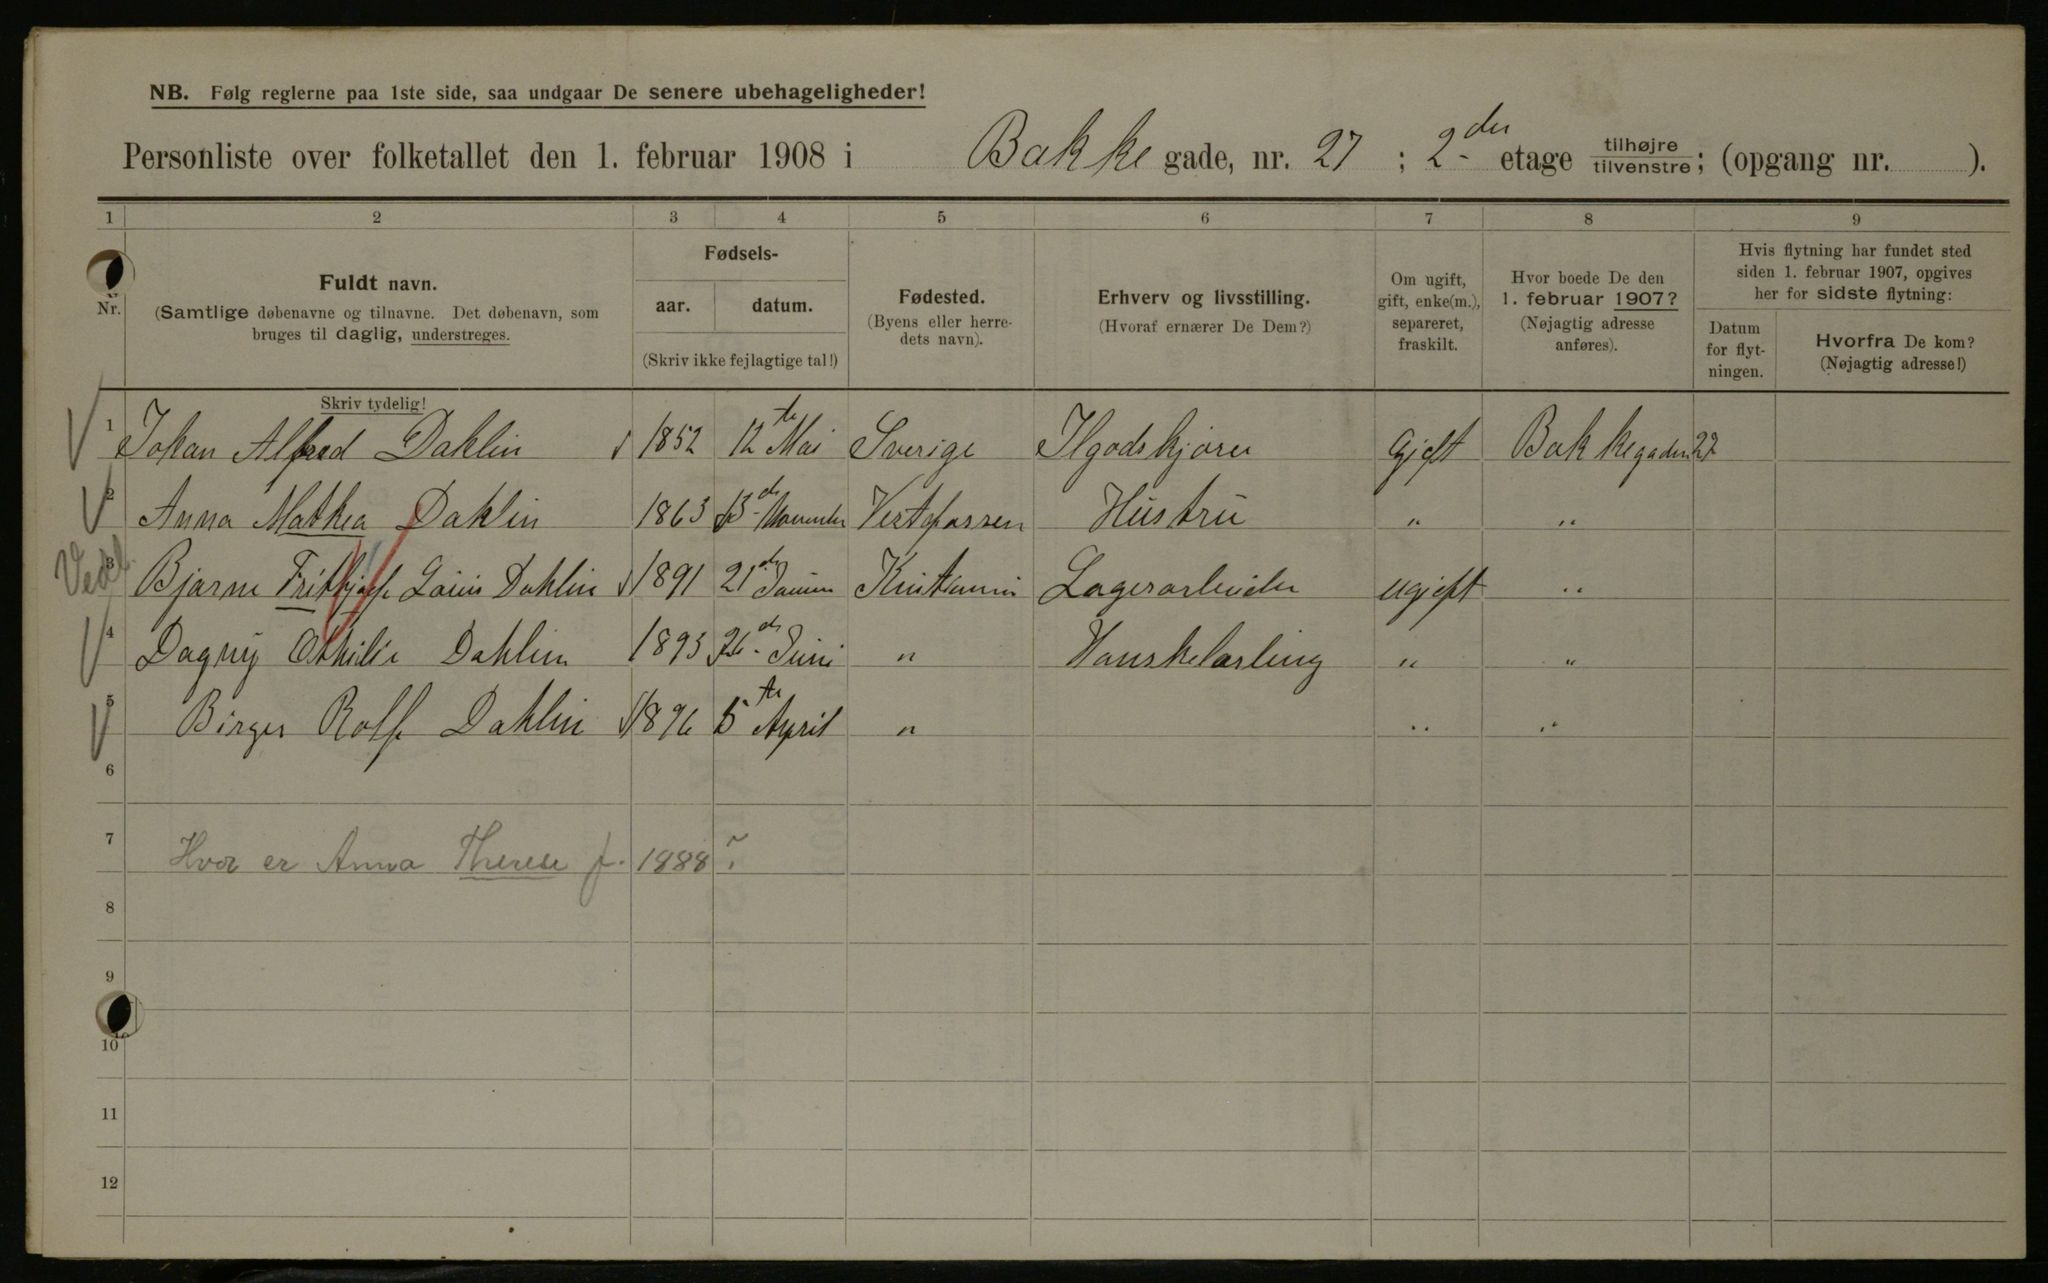 NB. Følg reglerne paa 1ste side, saa undgaar De senere ubehageligheder!
Personliste over folketallet den 1. februar 1908 i Bakke gade, nr. 27 ; 2-den etage tilhøjre tilvenstre; (opgang nr. ).
1 2 3 4 5 6 7 8 9
Nr.
Fuldt navn.
(Samtlige døbenavne og tilnavne. Det døbenavn, som
bruges til daglig, understreges.
Skriv tydelig!
Fødsels-
aar. datum.
(Skriv ikke fejlagtige tal!)
Fødested.
(Byens eller herre-
dets navn).
Erhverv og livsstilling.
(Hvoraf ernærer De Dem?)
Om ugift,
gift, enke(m.),
separeret,
fraskilt.
Hvor boede De den
1. februar 1907?
(Nøjagtig adresse
anføres).
Hvis flytning har fundet sted
siden 1. februar 1907, opgives
her for sidste flytning:
Datum
for flyt-
ningen.
Hvorfra De kom?
(Nøjagtig adresse!)
1 Johan Alfred Dahlin 1852 12te Mai Sverige Ilgodskjører Gjeft Bakkegaden 27
2 Anna Mathea Dahlin 1863 13de November Hustru " "
3 Bjarne Frithjof Louis Dahlin 1891 21de Lagerarbeider ugjeft "
4 Dagny Othilie Dahlin 1893 Juni " Hanskelærling " "
5 Birger Rolf Dahlin 1896 5te April " " "
6
7 Hvor er Anna Therese f. 1888 ?
8
9
10
11
12